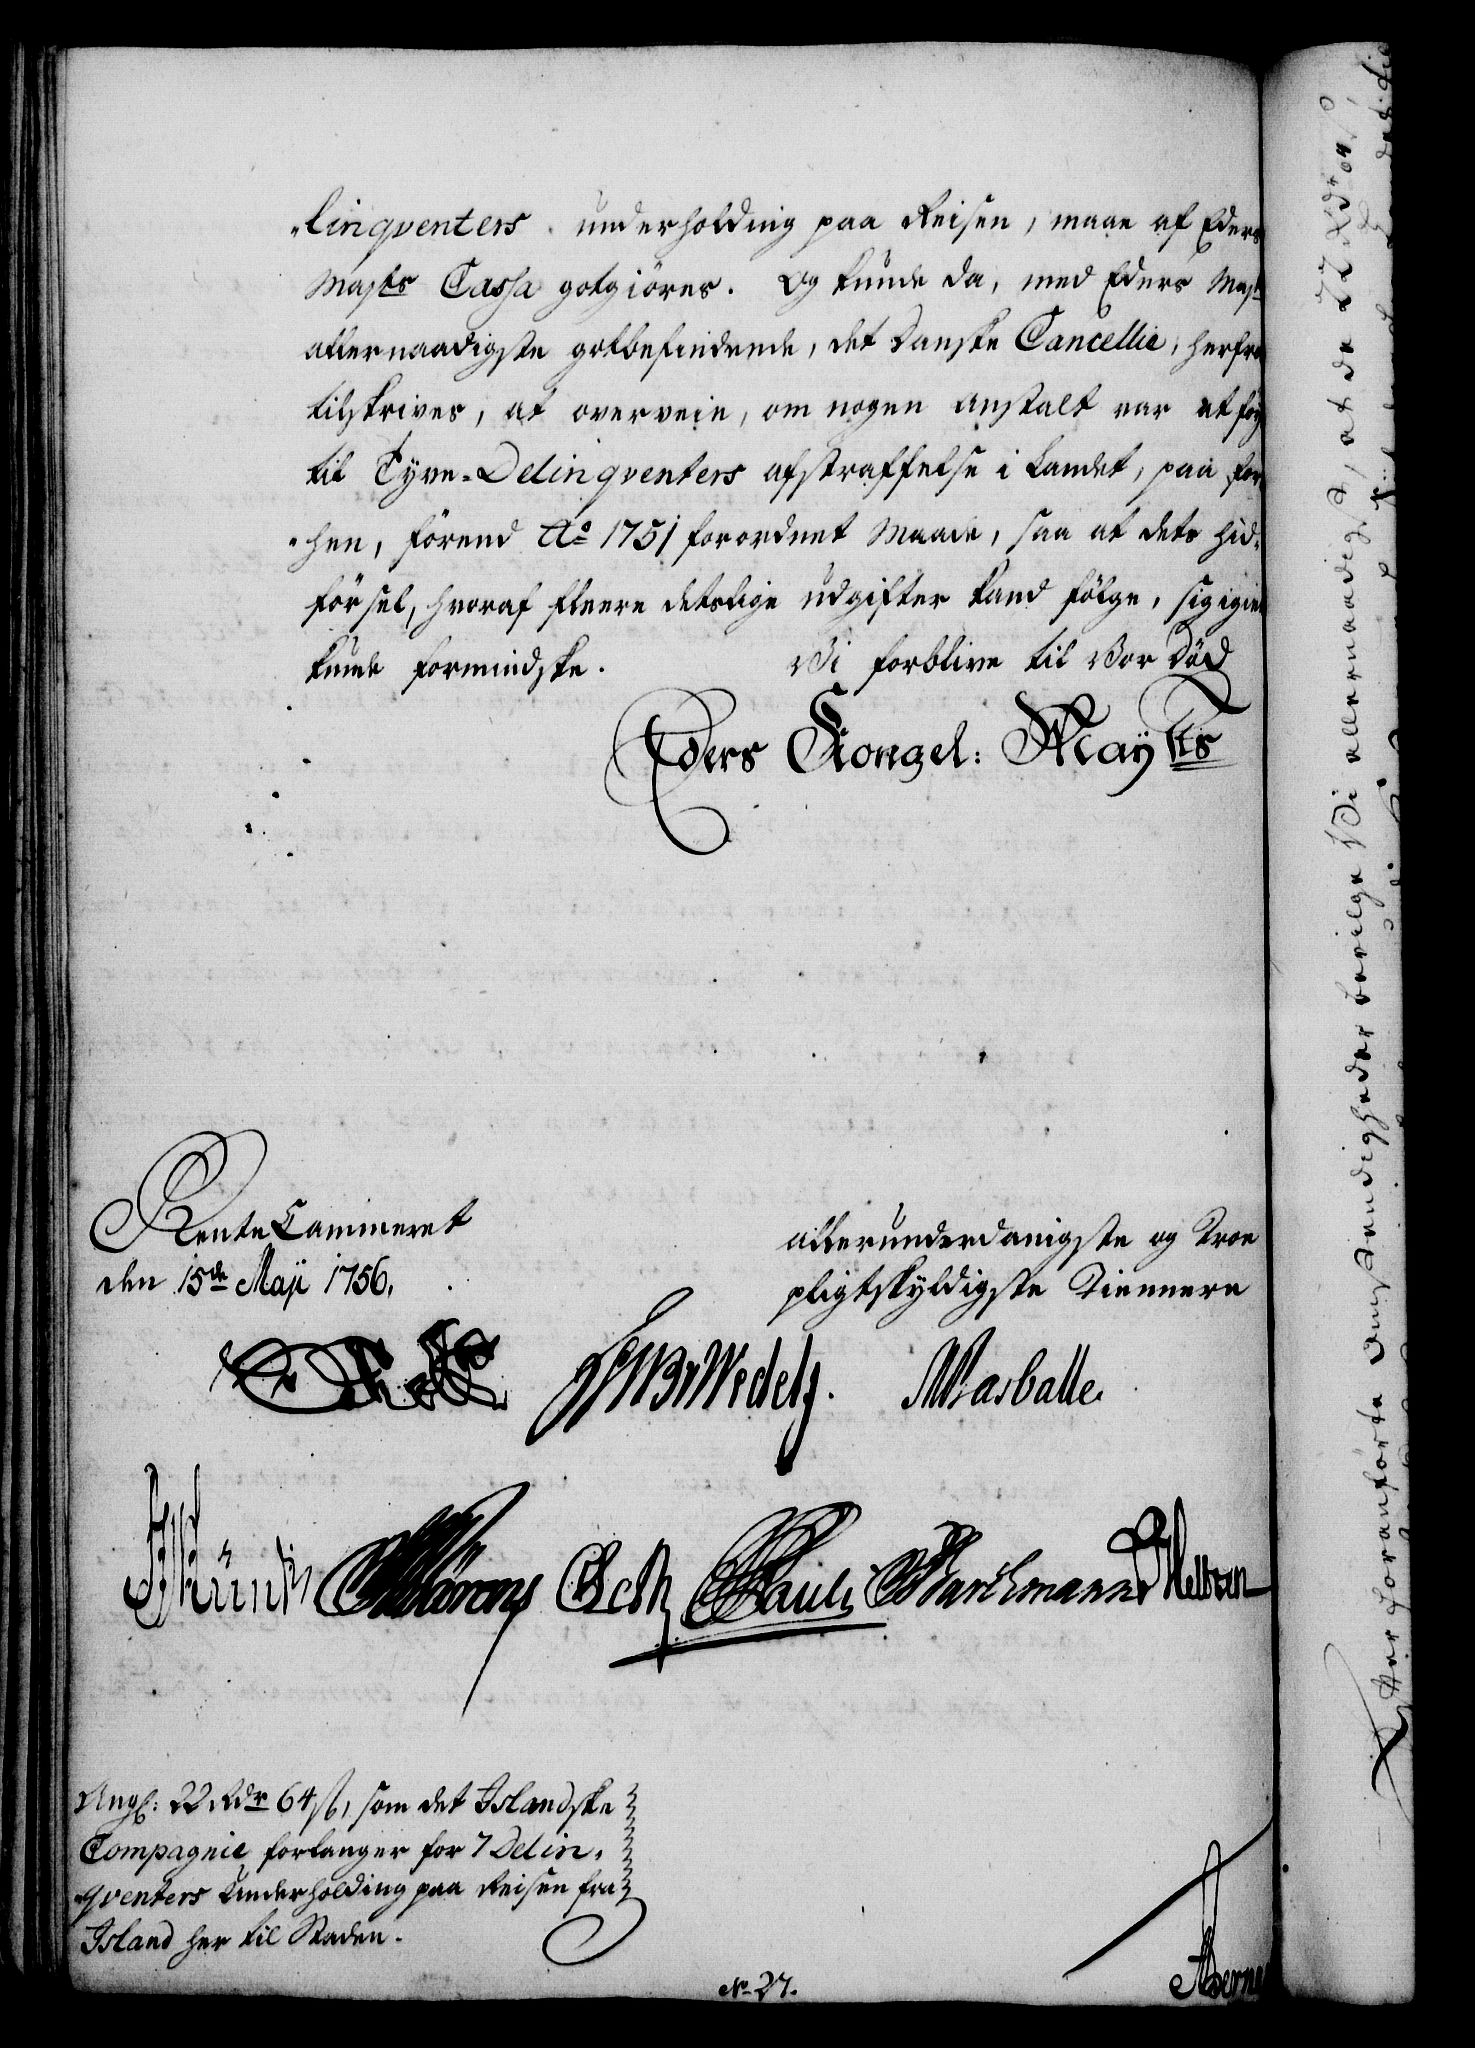 "linqventers underholding paa Reisen, maae af Eders
Majts Cassa godtgiöres. Og kunde da, med Eders Majts
allernaadigste gotbefindende, det Danske Cancellie, herfra
tilskrives, at overveie, om nogen anstalt var at föye
til Tyve-Delinqventers afstraffelse i Landet, paa for
"hen, förend Ao 1751 forordnet Maade, saa at dets hid-
försel, hvoraf fleere deslige udgifter kand fölge, sig igien
kunde formindske. Vi forblive til Vor Död
Eders Kongel: Mayts
RenteCammeret
den 15de Maji 1756.
allerunderdanigste og Troe
pligtskyldigste Tiennere
Wedel. Masballe.
Pauli Marckmann
Ang: 22 Rdr 64 s, som det Islandske
Compagnie forlanger for 7 Delin-
qventers Underholding paa Reisen fra
Island her til Staden.
No 27.
Under foranförte Omstændigheder bevilge Vi allernaadigst, at de 22 Rdr 64 s